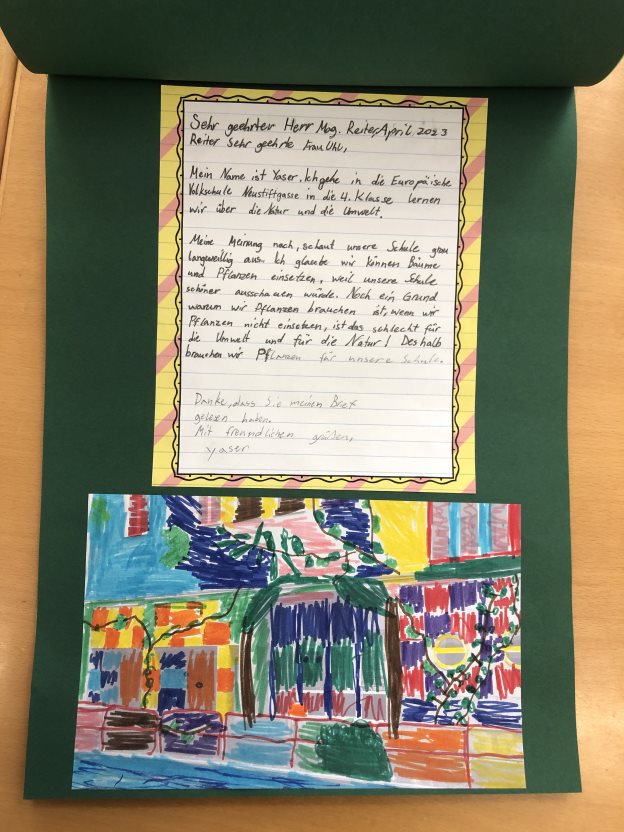 Sehr geehrter Herr Mag. Reiter, April, 2023
Reiter Sehr geehrte Frau Uhl,
Mein Name ist Yaser. Ich gehe in die Europäische
Volkschule Neustiftgasse in die 4. Klasse lernen
wir über die Natur und die Umwelt.
Meine Meinung nach, schaut unsere Schule grau
langweillig aus. Ich glaube wir können Bäume
und Pflanzen einsetzen, weil unsere Schule
schöner ausschauen würde. Noch ein Grund
warum wir Pflanzen brauchen ist, wenn wir
Pflanzen nicht einsetzen, ist das schlecht für
die Umwelt und für die Natur! Deshalb
brauchen wir Pflanzen für unsere Schule.
Danke, dass Sie meinen Brief
gelesen haben.
Mit freundlichen größen,
Yaser